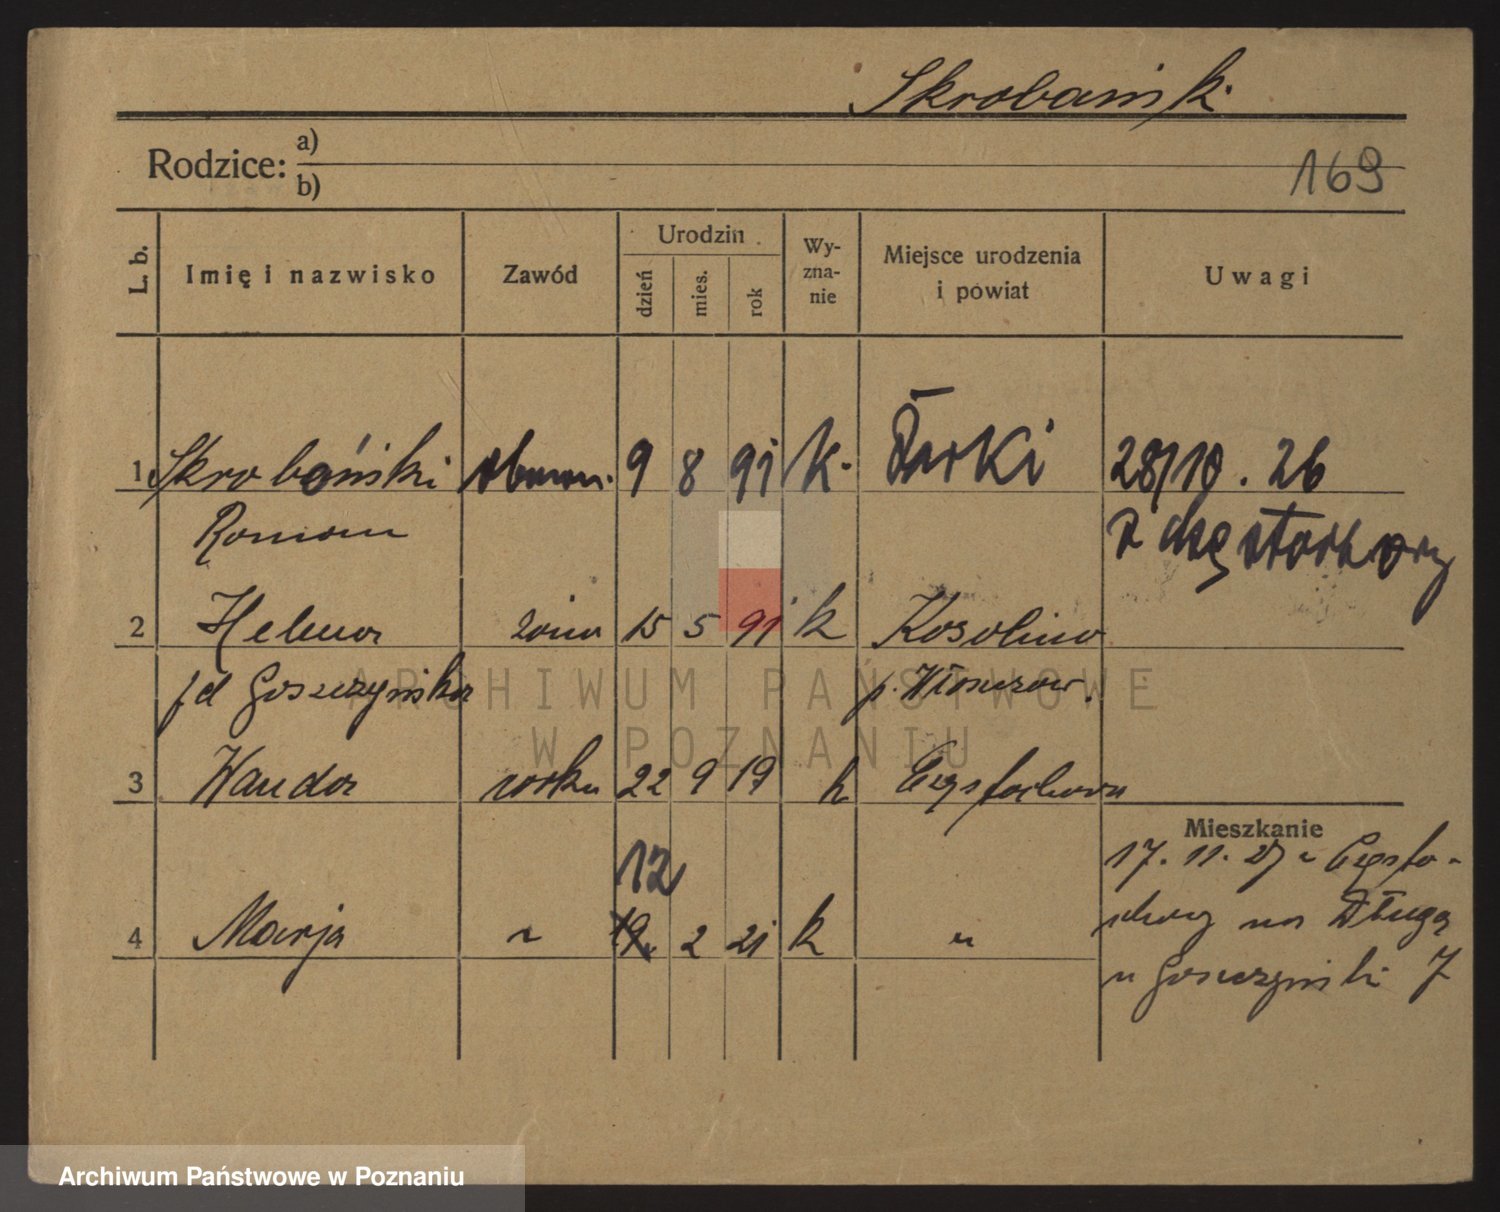 Skrobański
Rodzice: a)
b)
169
L. b. Imię i nazwisko Zawód Urodzin dzień mies. rok Wy-zna-nie Miejsce urodzenia i powiat Uwagi
1 Skrobański 9 8 91 k. Żarki 28/10. 26
Roman z Częstochowy
2 Helena żona 15 5 91 k Kosolina
fd Goszczyńska p. Włoszczow.
3 Wanda córka 22 9 19 k Częstochowa
Mieszkanie
12 17. 11. 27 Często-
4 Marja " 19. 2 21 k " chowy na Długą
u Goszczyński 7
ARCHIWUM PAŃSTWOWE
W POZNANIU
Archiwum Państwowe w Poznaniu